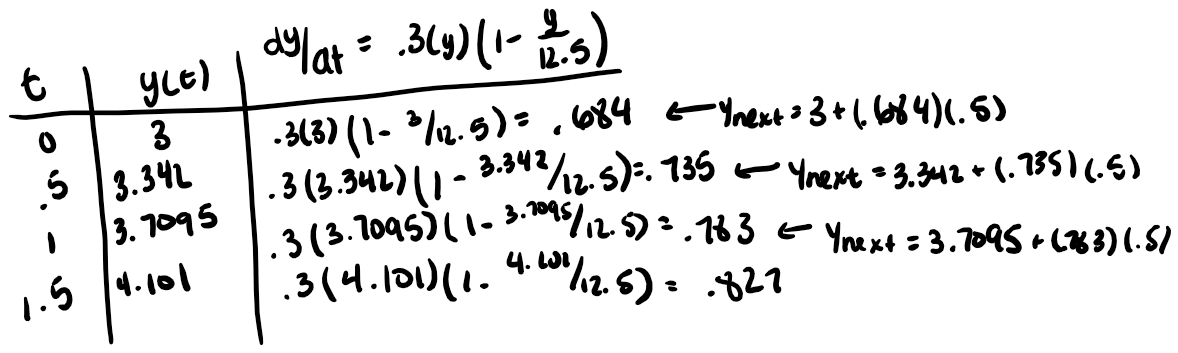 t y(t) dy/dt = .3(y)(1 - y/12.5)
0 3 .3(3)(1 - 3/12.5) = .684 ← ynext = 3 + (.684)(.5)
.5 3.342 .3(3.342)(1 - 3.342/12.5) = .735 ← ynext = 3.342 + (.735)(.5)
1 3.7095 .3(3.7095)(1 - 3.7095/12.5) = .783 ← ynext = 3.7095 + (.783)(.5)
1.5 4.101 .3(4.101)(1 - 4.101/12.5) = .827